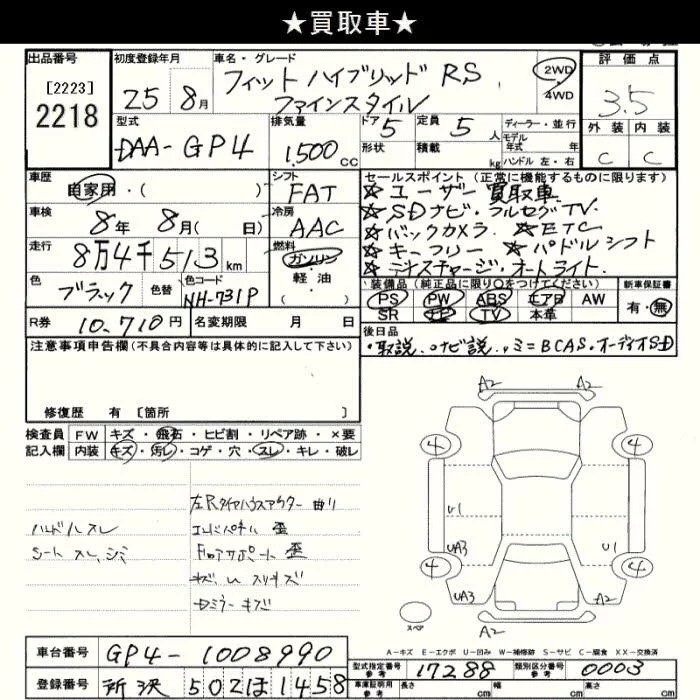 ★買取車★
出品番号 初度登録年月 車名・グレード 評価点
[2223]
2218
25 8月 フィットハイブリッド RS
ファインスタイル
2WD
4WD
3.5
型式 排気量 ドア 定員 ディーラー・並行
DAA-GP4 1,500cc 5 5人
形状 積載 kg
モデル 年式 年
ハンドル 左・右
外装 内装
C C
車歴 シフト セールスポイント (正常に機能するものに限ります)
自家用・( ) FAT
★ユーザー買取車
★SDナビ・フルセグTV.
★バックカメラ. ★ETC
★キーフリー ★パドルシフト
★ディスチャージ・オートライト.
車検 冷房
8年 8月( 日) AAC
走行 燃料
8万4千513km ガソリン
軽油
( )
色 色替 色コード
ブラック NH-731P
装備品 (純正品に限り〇をつけてください) 新車保証書
PS PW ABS エアB AW 有・無
SR ナビ TV 本革
R券 10,710円 名変期限 月 日
後日品
・取説.・ナビ説.・ミニBCAS・オーディオSD
注意事項申告欄(不具合内容等は具体的に記入して下さい)
修復歴 有 [箇所 ]
検査員 FW キズ・飛石・ヒビ割・リペア跡・×要
記入欄 内装 キズ・汚レ・コゲ・穴・スレ・キレ・破レ
ハンドルスレ
シートスレ、シミ
左Rタイヤハウスアウター曲り
エンドパネル歪
Fロアサポート歪
A2 A2
4 4
U1
UA3 U1
4 4
UA3
A2
スペア
A-キズ E-エクボ U-凹み W-補修跡 S-サビ C-腐食 XX-交換済
車台番号 GP4-1008990
登録番号 所沢 502 ほ 1458
型式指定番号 参考 17288 類別区分番号 参考 0003
車庫証明用 参考 長さ cm 幅 cm 高さ cm